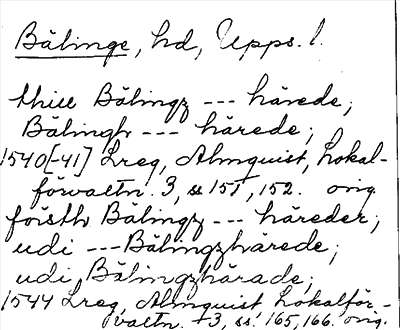 Bälinge, hd, Upps. l.
thiee Bälingz --- härede;
Bälingh --- härede;
1540[-41] Lreg, Almquist, Lokal-
förvaltn. 3, ss 151, 152. orig.
försth Bälingz --- häreder;
udi --- Bälingzhärede;
udi Bälingzhärade;
1544 Lreg, Almquist Lokalför-
valtn. 3, ss. 165, 166. orig.